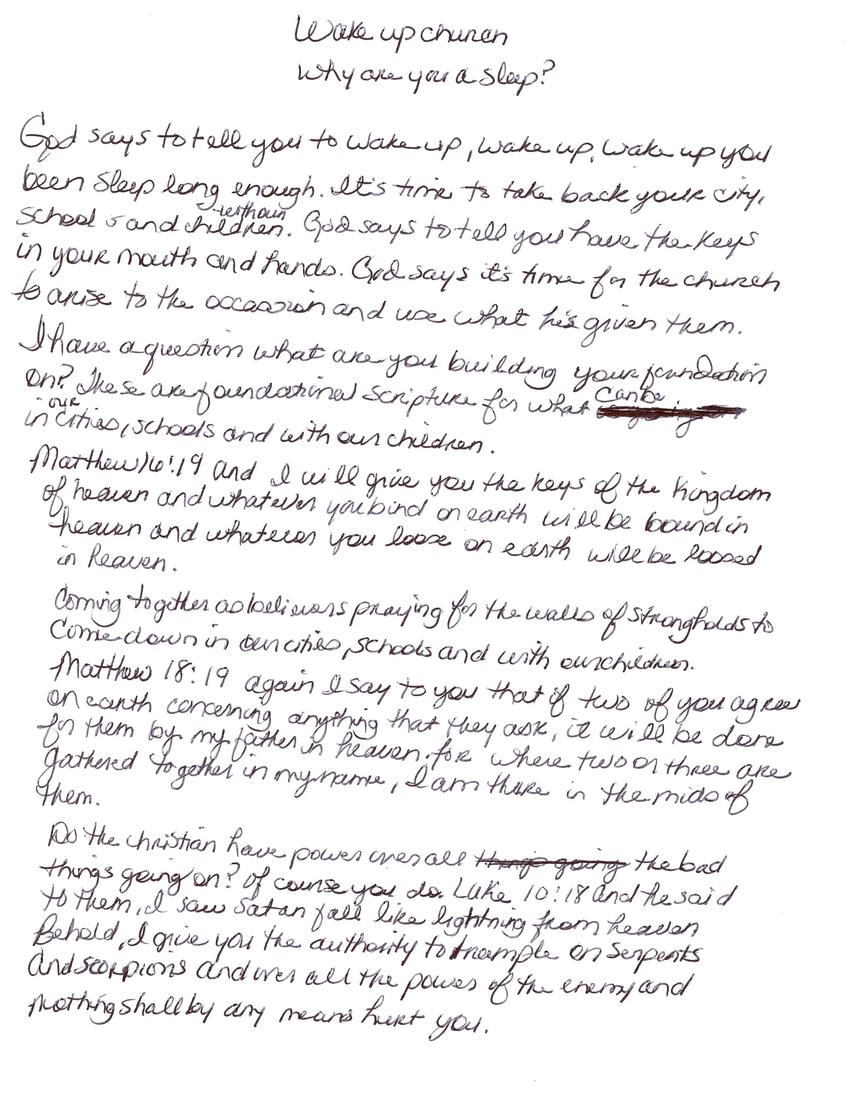 Wake up church
Why are you a sleep?
God says to tell you to wake up, wake up, wake up you
been sleep long enough. It's time to take back your city,
school s and with our children. God says to tell you have the keys
in your mouth and hands. God says it's time for the church
to arise to the occassion and use what he's given them.
I have a question what are you building your foundation
on? These are foundational scripture for what can be
in our cities, schools and with our children.
Matthew 16:19 and I will give you the keys of the kingdom
of heaven and whatever you bind on earth will be bound in
heaven and whatever you loose on earth will be loosed
in heaven.
Coming together as believers praying for the walls of strongholds to
come down in our cities, schools and with our children.
Matthew 18:19 again I say to you that if two of you agree
on earth concerning anything that they ask, it will be done
for them by my father in heaven. for where two or three are
gathered together in my name, I am there in the mids of
them.
Do the christian have power over all things going the bad
things going on? of course you do. Luke 10:18 and he said
to them, I saw Satan fall like lightning from heaven
Behold, I give you the authority to trample on serpents
and scorpions and over all the power of the enemy and
nothing shall by any means hurt you.